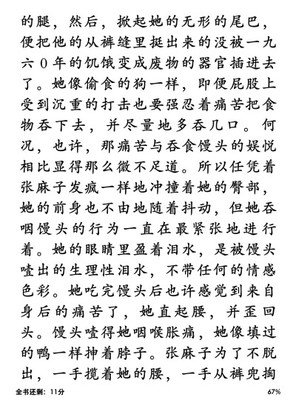 的腿，然后，掀起她的无形的尾巴，
便把他的从裤缝里挺出来的没被一九
六０年的饥饿变成废物的器官插进去
了。她像偷食的狗一样，即便屁股上
受到沉重的打击也要强忍着痛苦把食
物吞下去，并尽量地多吞几口。何
况，也许，那痛苦与吞食馒头的娱悦
相比显得那么微不足道。所以任凭着
张麻子发疯一样地冲撞着她的臀部，
她的前身也不由地随着抖动，但她吞
咽馒头的行为一直在最紧张地进行
着。她的眼睛里盈着泪水，是被馒头
噎出的生理性泪水，不带任何的情感
色彩。她吃完馒头后也许感觉到来自
身后的痛苦了，她直起腰，并歪回
头。馒头噎得她咽喉胀痛，她像填过
的鸭一样抻着脖子。张麻子为了不脱
出，一手揽着她的腰，一手从裤兜掏
全书还剩：11分
67%